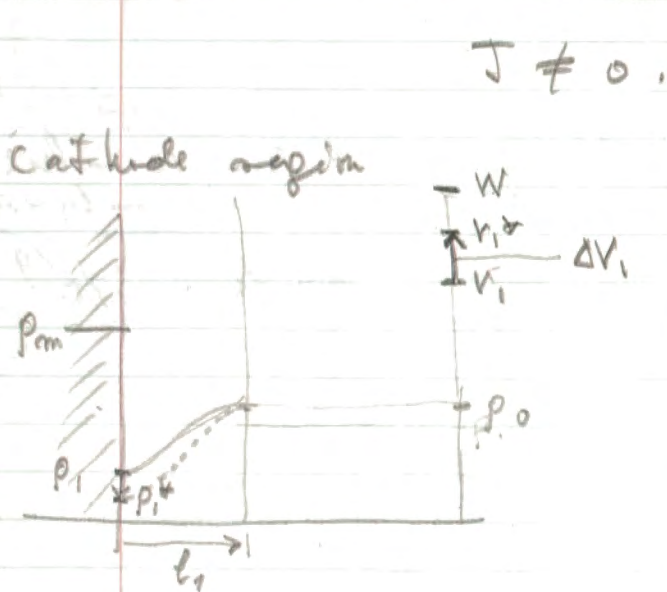 J ≠ 0.
Cathode region
W
V₁*
ΔV₁
V₁
ρm
ρ₀
ρ₁
ρ₁*
l₁